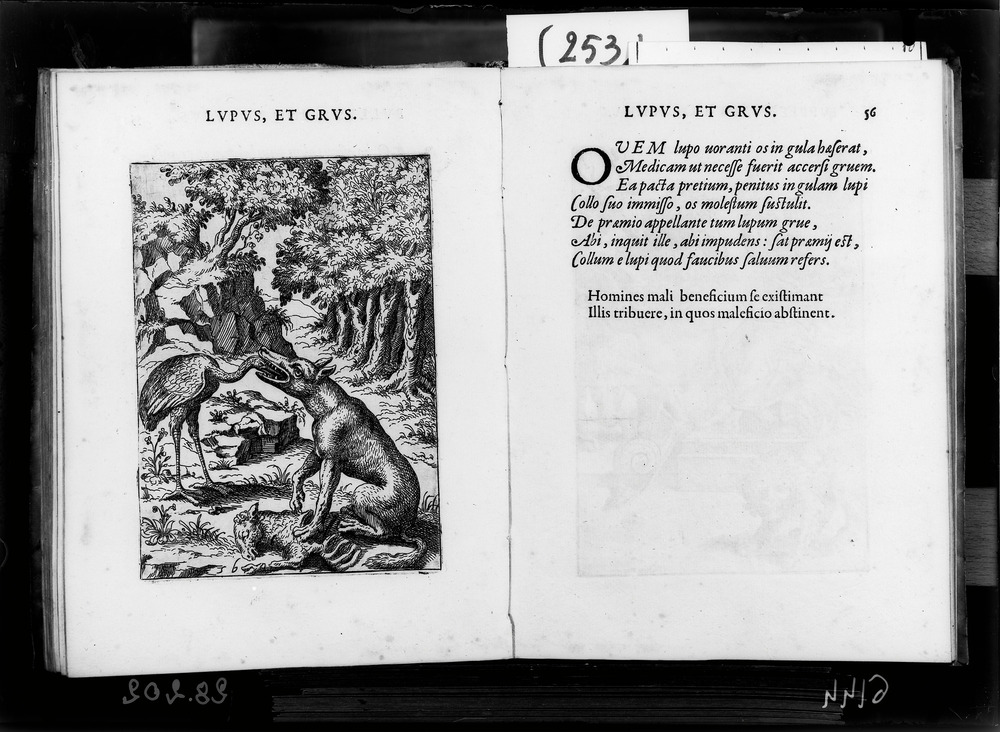 (253)
LVPVS, ET GRVS.
LVPVS, ET GRVS.
56
OVEM lupo uoranti os in gula hæſerat,
Medicam ut neceſſe fuerit accerſi gruem.
Ea pacta pretium, penitus in gulam lupi
Collo ſuo immiſſo, os moleſtum ſuſtulit.
De præmio appellante tum lupum grue,
Abi, inquit ille, abi impudens: ſat præmij eſt,
Collum e lupi quod faucibus ſaluum refers.
Homines mali beneficium ſe exiſtimant
Illis tribuere, in quos maleficio abſtinent.
56
28.202
6144